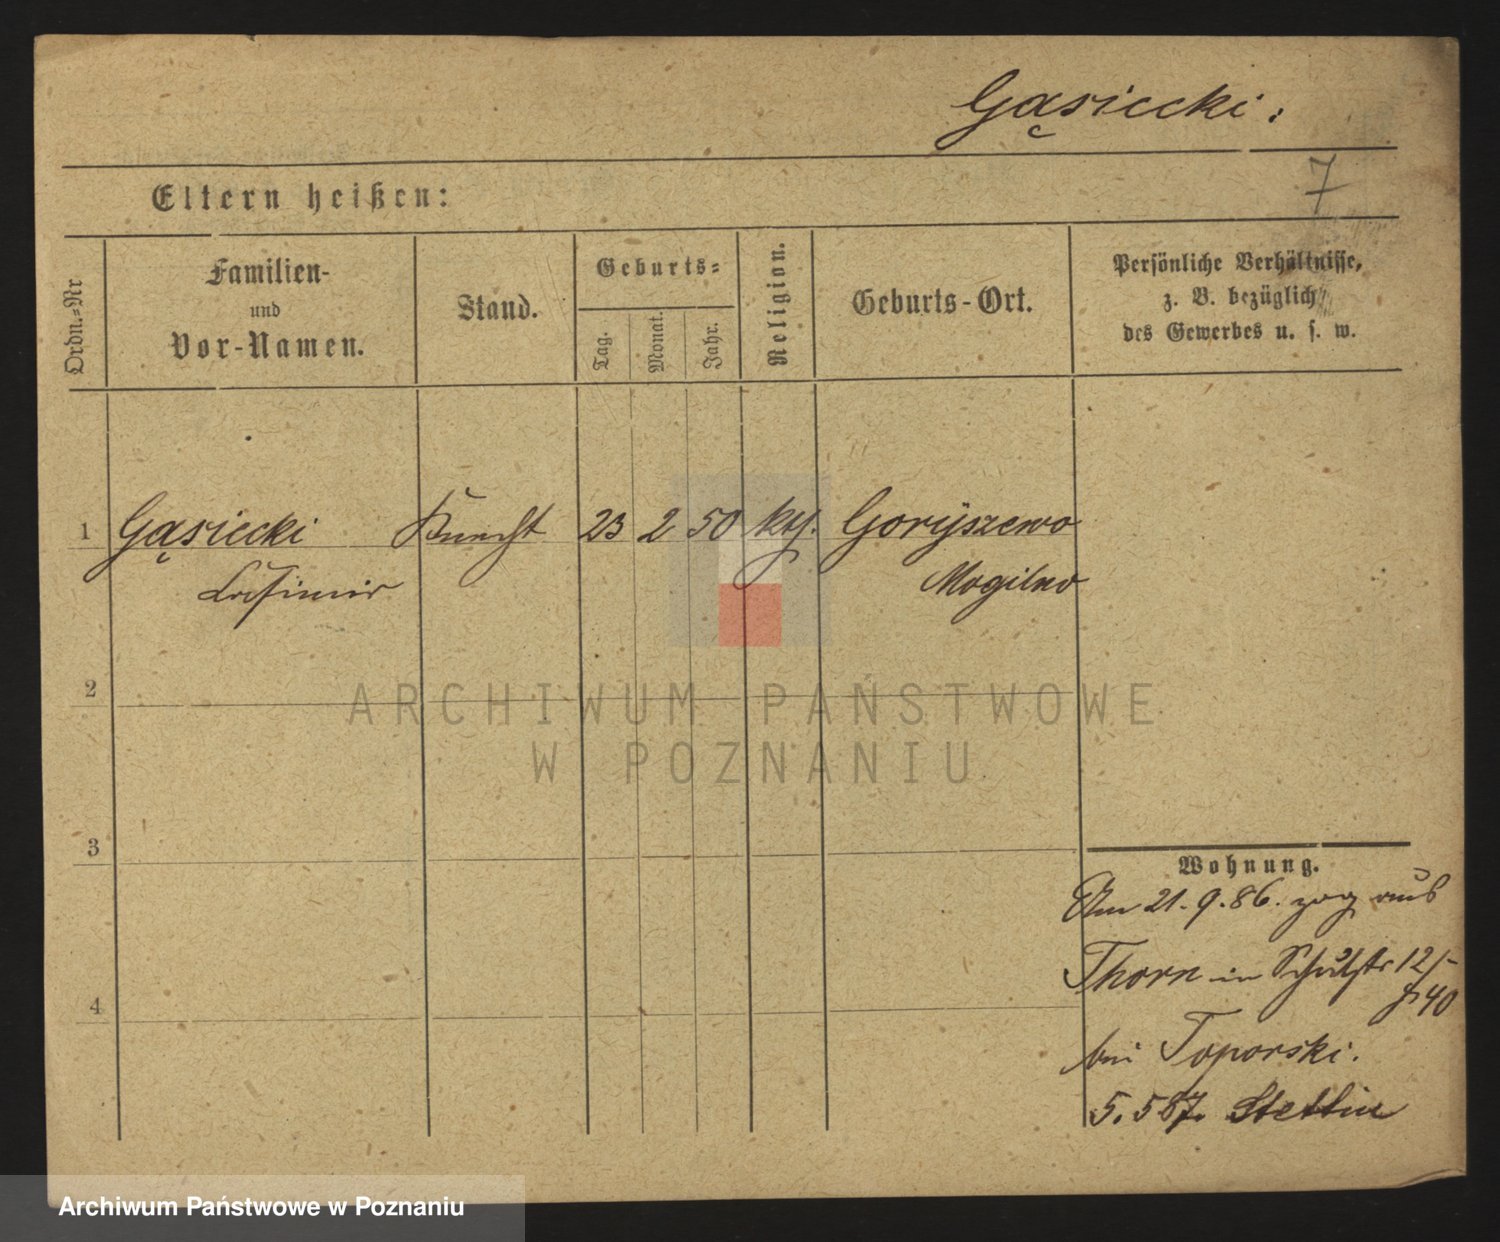 Gąsiecki:
7
Eltern heißen:
Ordn.=Nr
Familien-
und
Vor-Namen.
Stand.
Geburts=
Tag.
Monat.
Jahr.
Religion.
Geburts-Ort.
Persönliche Verhältnisse,
z. B. bezüglich
des Gewerbes u. s. w.
1 Gąsiecki Knecht 23 2 50 kth. Goryszewo
Casimir Mogilno
2
3
4
Wohnung.
Am 21.9.86. zog aus
Thorn in Schulstr 12/-
40
bei Toporski.
5.587. Stettin
ARCHIWUM PAŃSTWOWE
W POZNANIU
Archiwum Państwowe w Poznaniu